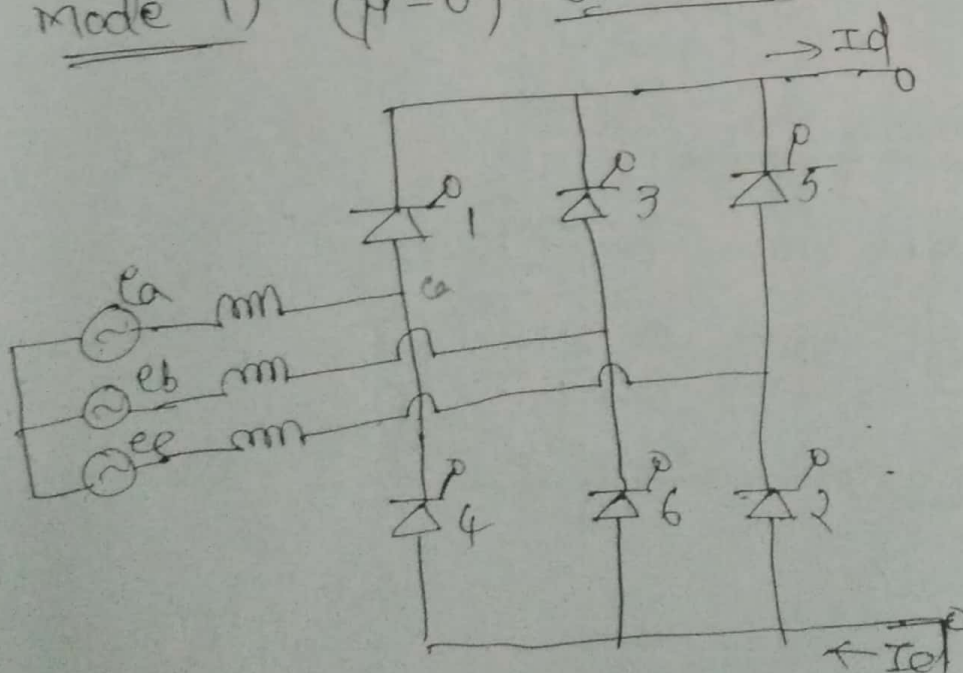 Mode 1) (μ=0)
→ Id
1
3
5
ea
a
eb
ec
4
6
2
← Id